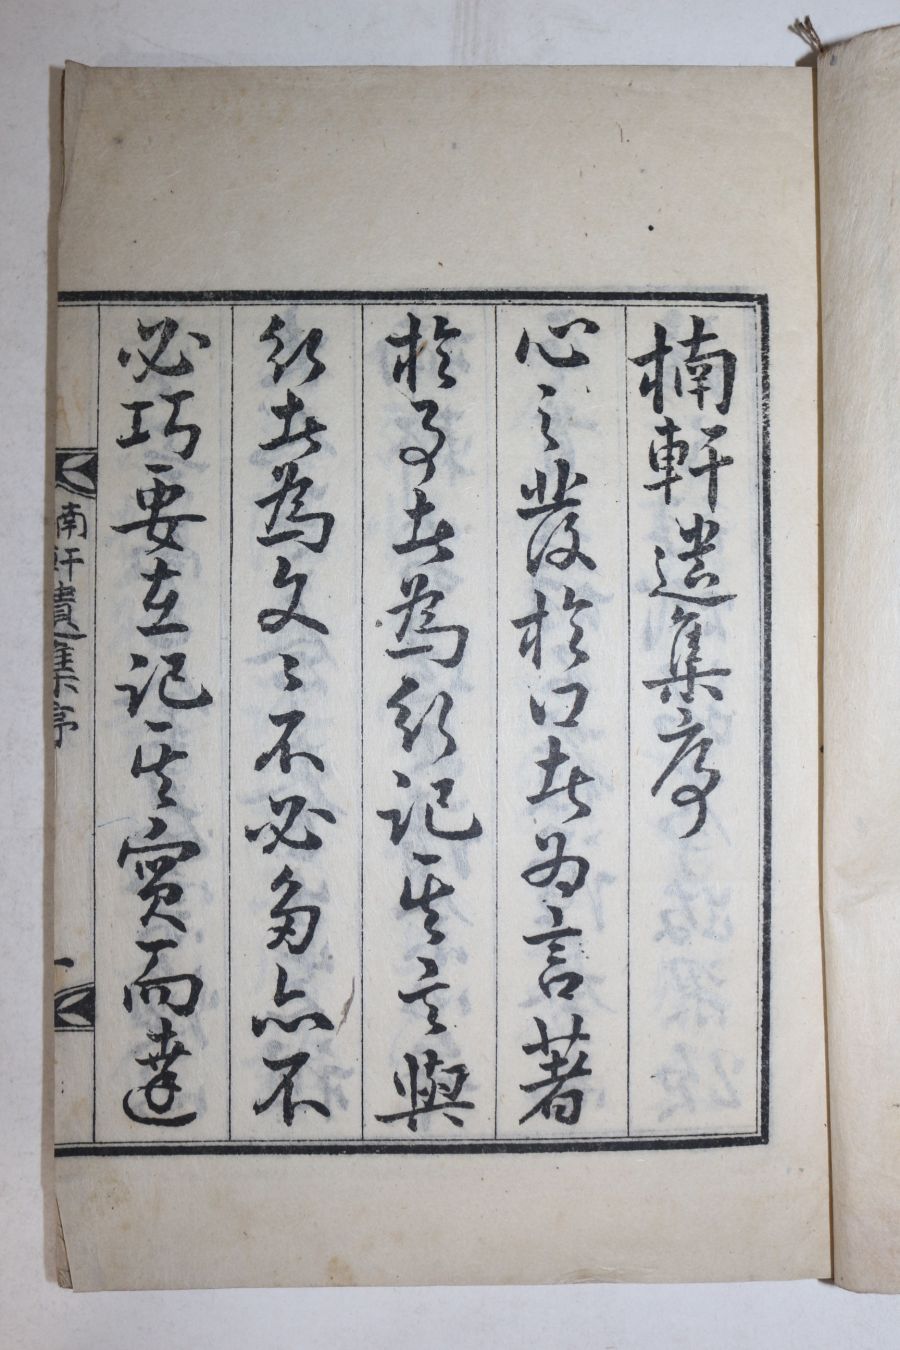 楠軒遺集序
心之發於口者为言著
於事者為行記其言與
行者為文〻不必多亦不
必巧要在記其實而達
楠軒遺集序
一